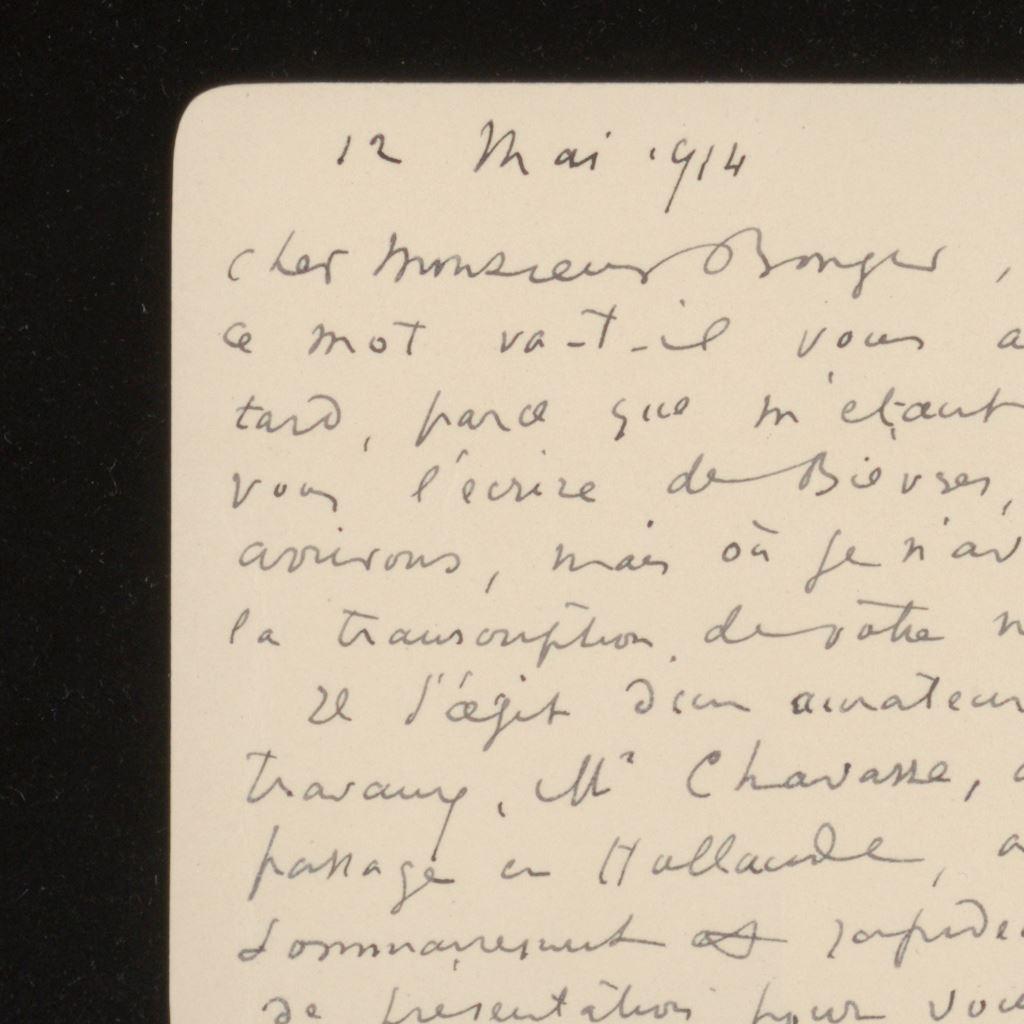 12 Mai 1914
cher Monsieur Bonger,
ce mot va-t-il vous a
tard, parce que m'étant
vous l'écrire de Bièvres,
arrivons, mais où je n'av
la transcription de vôtre n
Il s'agit d'un amateur
travaux, Mr Chavasse, a
passage en Hollande, a
sommairement et rapide
de présentation pour vou